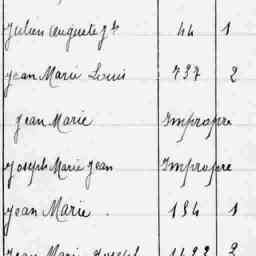 Julien Auguste 44 1
Jean Marie Louis 737 2
Jean Marie Impropre
Joseph Marie Jean Impropre
Jean Marie . 134 1
Jean Marie Joseph 2